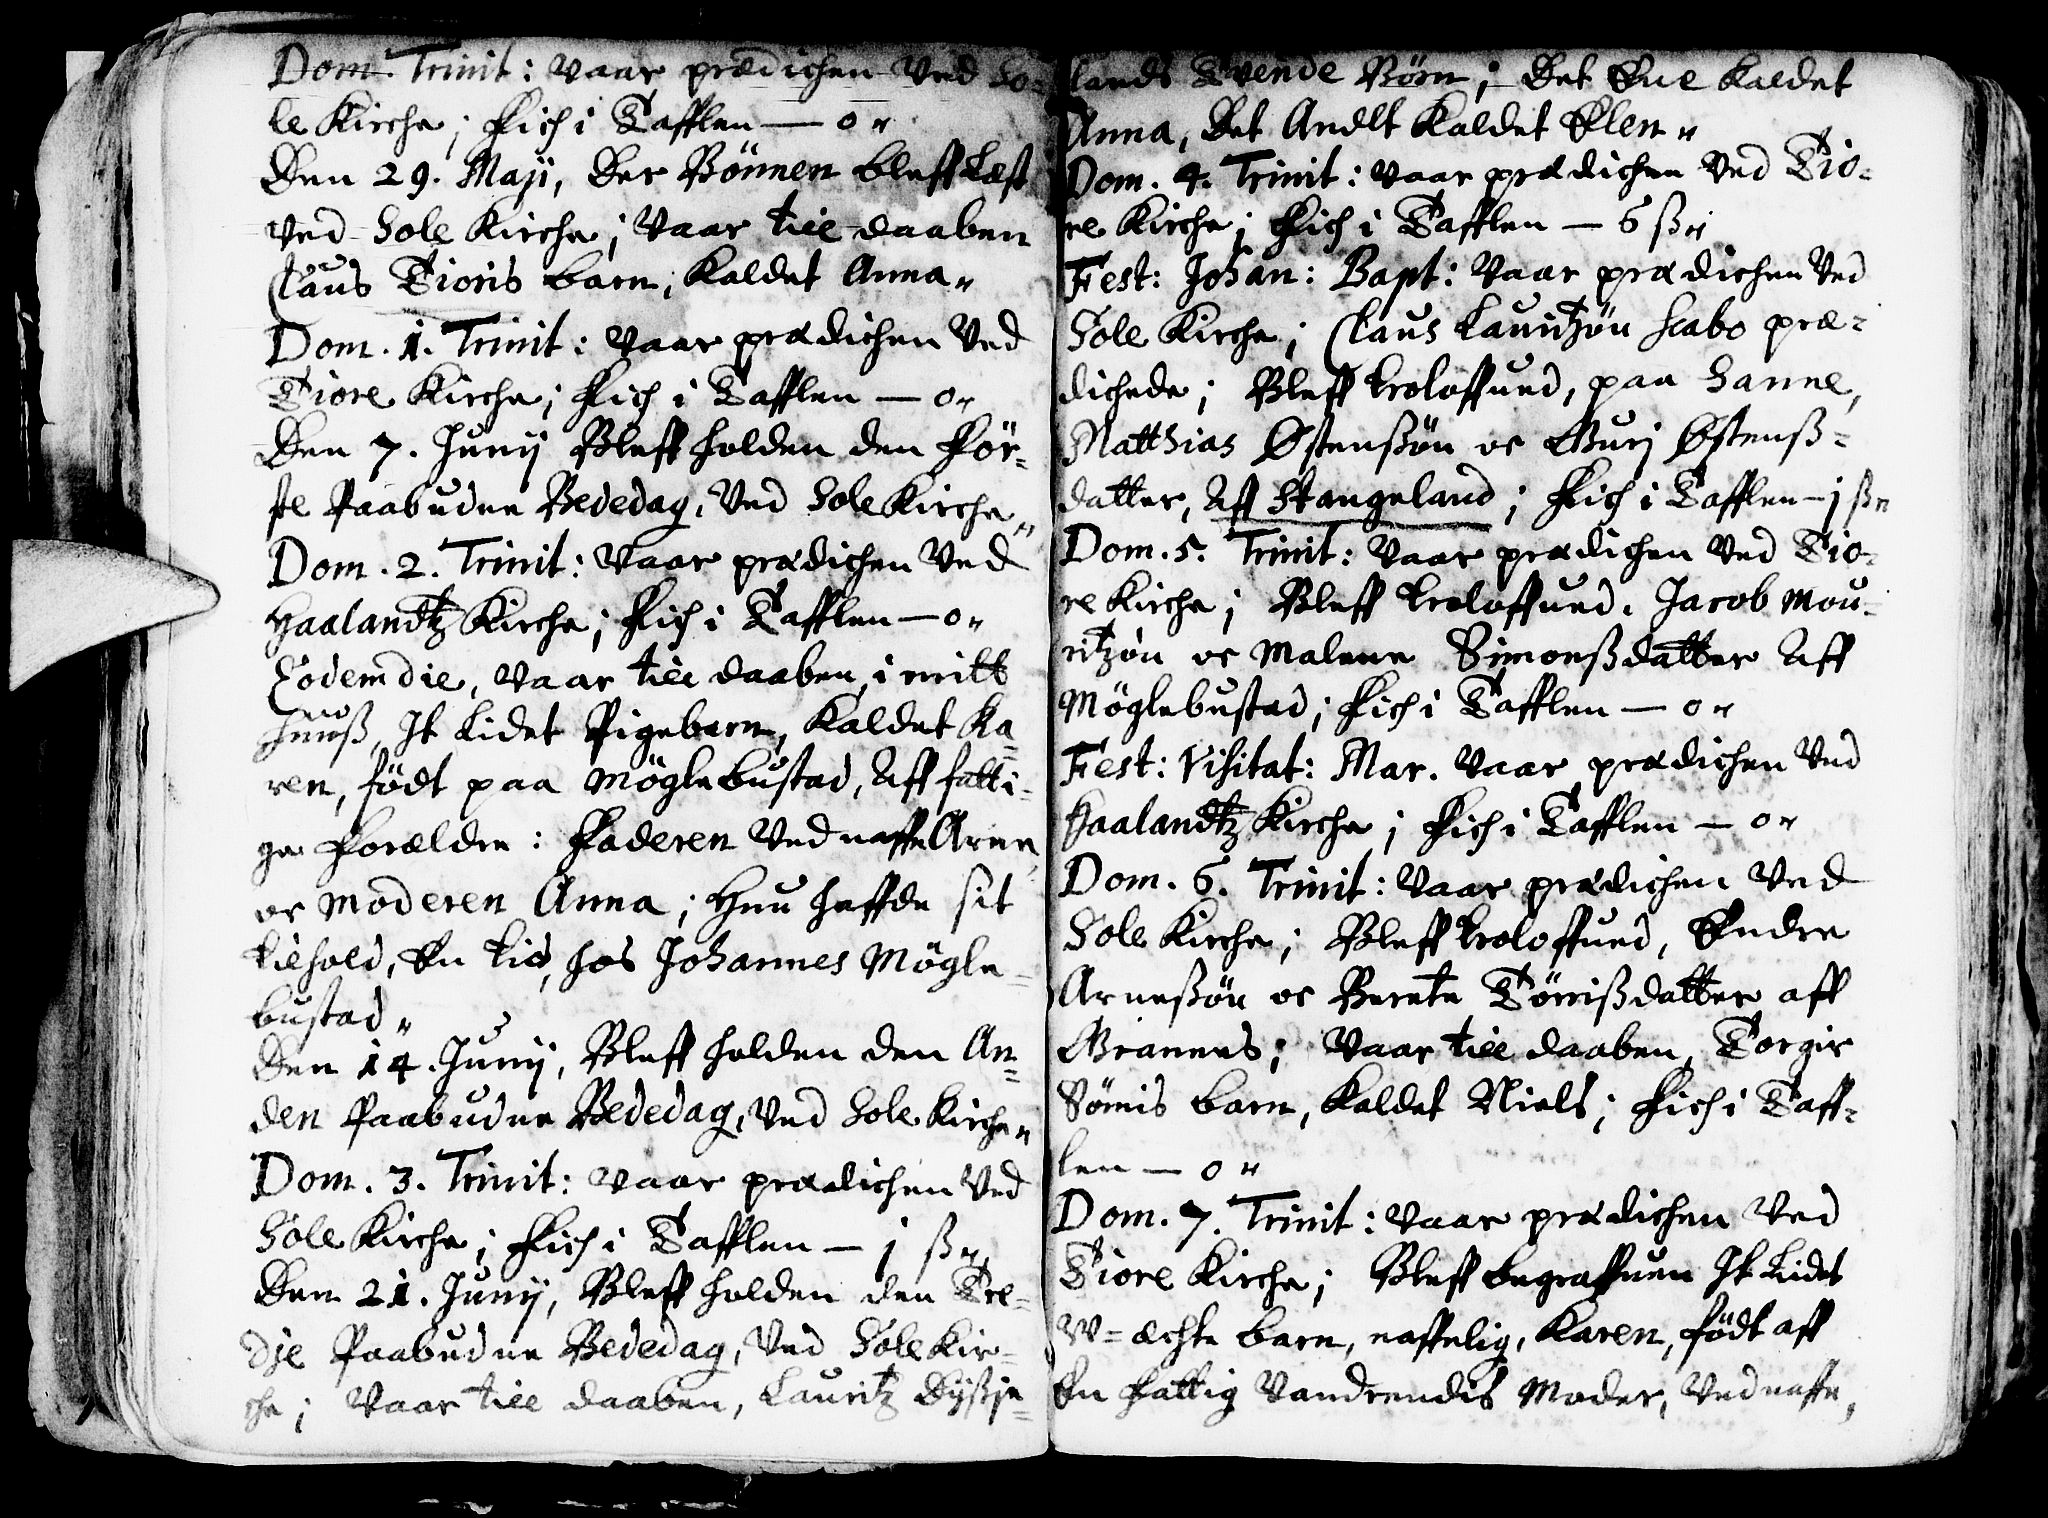 Dom. Trinit: Vaar prædichen Ved So-
le Kirche; Fich i Tafflen — 0 "
Den 29. Maji, Der Bønnen bleff Læst
Ved Sole Kirche; Vaar till daaben
Claus Tioris barn, Kaldet Anna "
Dom. 1. Trinit: Vaar prædichen Ved
Tiore Kirche; Fich i Tafflen — 0 "
Den 7. Junij Bleff holden den Før-
ste Paabudne Bededag, Ved Sole Kirche "
Dom. 2. Trinit: Vaar prædichen Ved
Haalandtz Kirche; Fich i Tafflen — 0 "
Eodem die, Vaar till daaben, i mitt
Huuß, It Lidet Pigebarn, Kaldet Ka=
ren, født paa Møglebustad, Aff fatti-
ge Forældre: Faderen Ved naffn Arne,
oc Moderen Anna; Hun haffde sit
tilhold, En tid, hos Johannes Møgle-
bustad "
Den 14. Junij, Bleff holden den An=
den Paabudne Bededag, Ved Sole Kirche "
Dom. 3. Trinit: Vaar prædichen Ved
Sole Kirche; Fich i Tafflen — j ß "
Den 21. Junij, Bleff holden den Tre-
dje Paabudne Bededag, Ved Sole Kir-
che; Vaar till daaben, Lauritz Dysje=
lands Tvende Børn; Det Ene Kaldet
Anna, Det Andet Kaldet Elen "
Dom. 4. Trinit: Vaar prædichen Ved Tio-
re Kirche; Fich i Tafflen — 6 ß "
Fest: Johan: Bapt: Vaar prædichen Ved
Sole Kirche; Claus Lauritzøn Scabo præ-
dichede; Bleff troloffued, paa Sanne,
Matthias Østenßøn oc Gurj Østenß-
datter, Aff Stangeland; Fich i Tafflen — j ß "
Dom. 5. Trinit: Vaar prædichen Ved Tio-
re Kirche; Bleff troloffued. Jacob Mou-
ritzøn oc Malene Simonßdatter Aff
Møglebustad; Fich i Tafflen — 0 "
Fest: Visitat: Mar. Vaar prædichen Ved
Haalandtz Kirche; Fich i Tafflen — 0 "
Dom. 6. Trinit: Vaar prædichen Ved
Sole Kirche; Bleff troloffued, Endre
Arneßøn oc Berete Tørrißdatter aff
Grannes; Vaar till daaben, Torgier
Sømis barn, Kaldet Niels; Fich i Taff-
len — 0 "
Dom. 7. Trinit: Vaar prædichen Ved
Tiore Kirche; Bleff begraffuen It Lidet
W=æchte barn, naffnlig, Karen, født aff
En fattig Vandrendis Moder, Ved naffn,